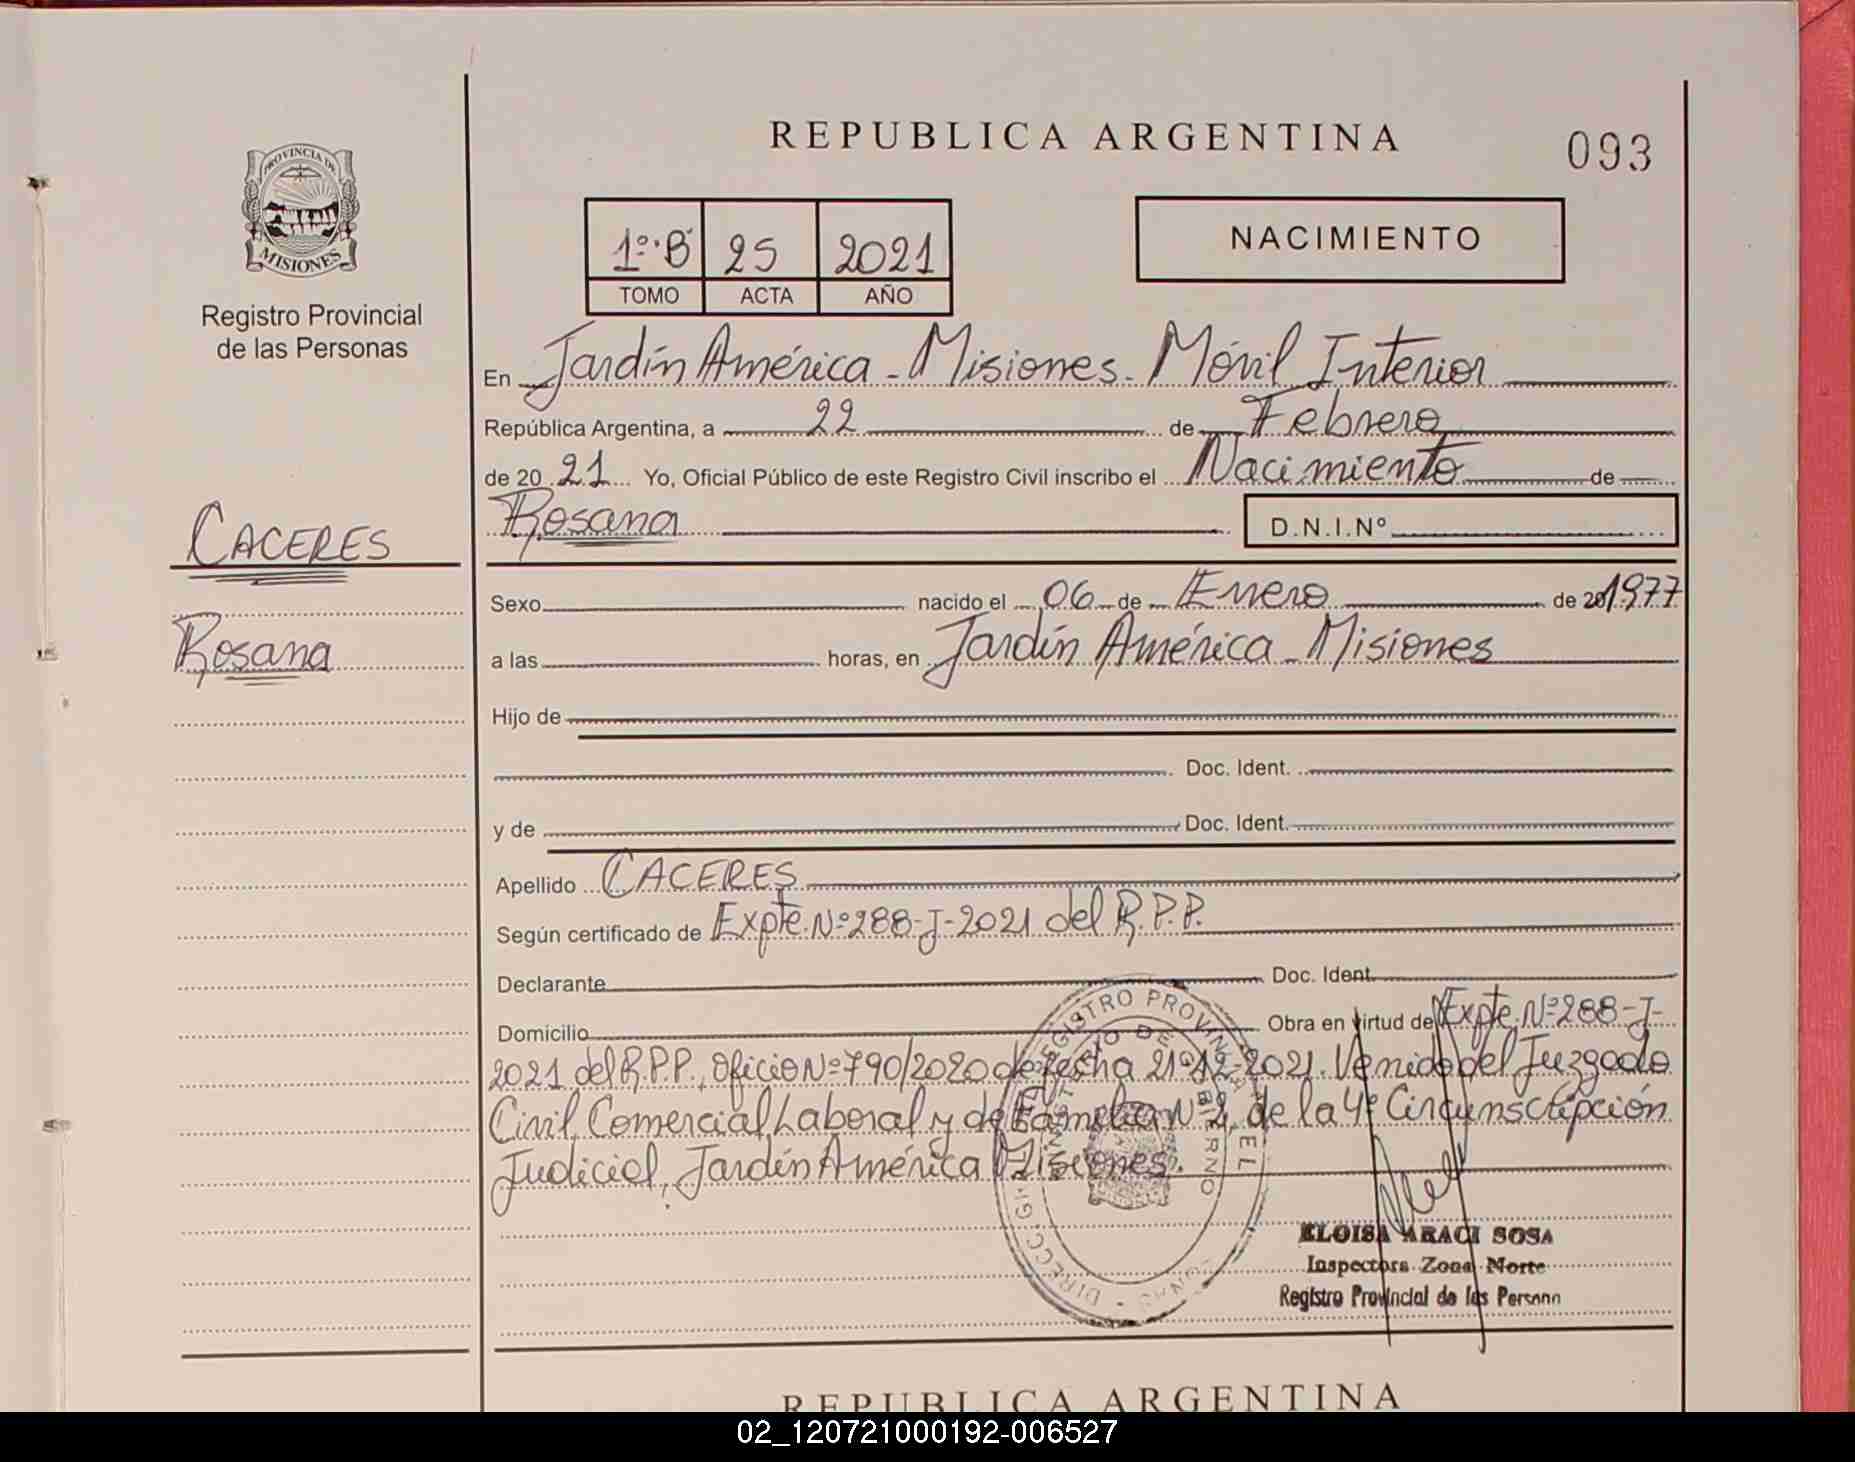 REPUBLICA ARGENTINA
093
PROVINCIA DE
MISIONES
Registro Provincial
de las Personas
1º "B" 25 2021
TOMO ACTA AÑO
NACIMIENTO
En Jardín América - Misiones - Móvil Interior
República Argentina, a 22 de Febrero
de 20 21 Yo, Oficial Público de este Registro Civil inscribo el Nacimiento de
Rosana D.N.I.Nº
CACERES
Rosana
Sexo nacido el 06 de Enero de 20 1977
a las horas, en Jardín América - Misiones
Hijo de
Doc. Ident.
y de Doc. Ident.
Apellido CACERES
Según certificado de Expte. Nº 288-J-2021 del R.P.P.
Declarante Doc. Ident.
Domicilio Obra en virtud de Expte. Nº 288-J-
2021 del R.P.P., Oficio Nº 790/2020 de fecha 21-12-2021. Venido del Juzgado
Civil, Comercial, Laboral y de Familia Nº 2, de la 4º Circunscripción
Judicial, Jardín América Misiones.
REGISTRO PROVINCIAL DE
MINISTERIO DE GOBIERNO
ELOISA ARACI SOSA
Inspectora Zona Norte
Registro Provincial de las Persona
REPUBLICA ARGENTINA
02_120721000192-006527